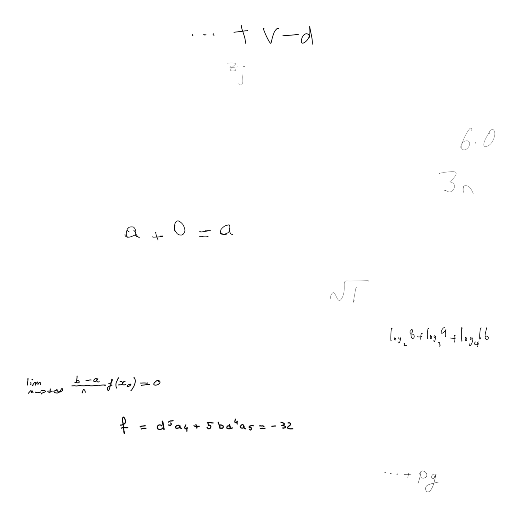 ⋯ + V − d
x_j
6.0
3n
a + 0 = a
√T
log₂8 + log₃9 + log₄16
lim_{n→+∞} \frac{b−a}{n} f(x₀) = 0
f = d⁵a₄ + 5ba⁴a₅ = −32
⋯ + pg